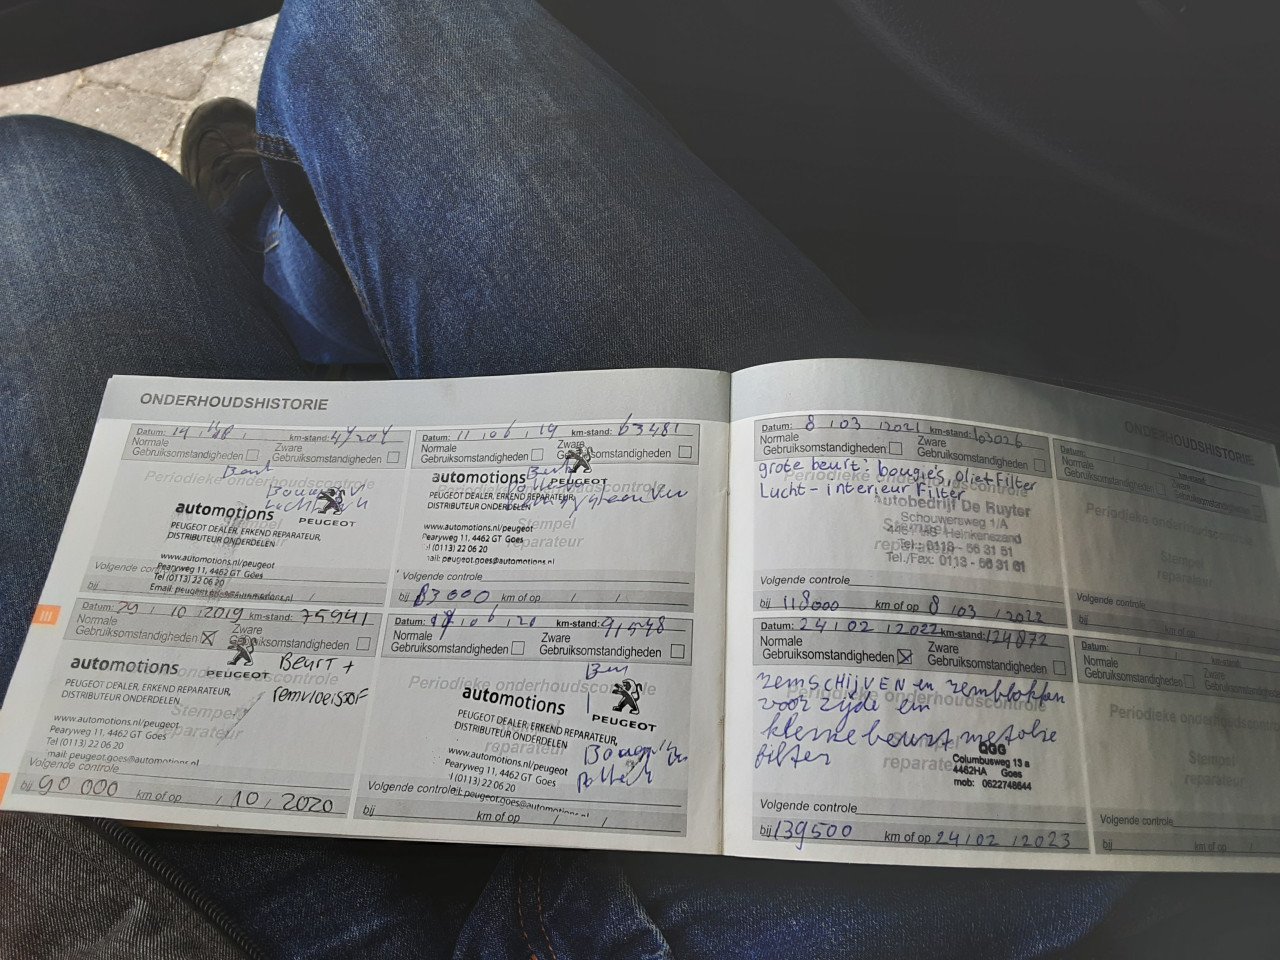 ONDERHOUDSHISTORIE
Datum: 14 / / km-stand:
Normale
Gebruiksomstandigheden
Zware
Gebruiksomstandigheden
Periodieke onderhoudscontrole
Beurt
automotions
PEUGEOT
PEUGEOT DEALER, ERKEND REPARATEUR,
DISTRIBUTEUR ONDERDELEN
Stempel
reparateur
www.automotions.nl/peugeot
Pearyweg 11, 4462 GT Goes
Tel (0113) 22 06 20
Email: peugeot.goes@automotions.nl
Volgende controle
bij km of op / /
Datum: 11 / 06 / 19 km-stand: 63481
Normale
Gebruiksomstandigheden
Zware
Gebruiksomstandigheden
Periodieke onderhoudscontrole
automotions
PEUGEOT
PEUGEOT DEALER, ERKEND REPARATEUR,
DISTRIBUTEUR ONDERDELEN
Stempel
reparateur
www.automotions.nl/peugeot
Pearyweg 11, 4462 GT Goes
(0113) 22 06 20
mail: peugeot.goes@automotions.nl
Volgende controle
bij 83000 km of op / /
Datum: 29 / 10 / 2019 km-stand: 75941
Normale
Gebruiksomstandigheden
Zware
Gebruiksomstandigheden
automotions
PEUGEOT
BEURT +
remvloeistof
PEUGEOT DEALER, ERKEND REPARATEUR,
DISTRIBUTEUR ONDERDELEN
Stempel
reparateur
www.automotions.nl/peugeot
Pearyweg 11, 4462 GT Goes
Tel (0113) 22 06 20
mail: peugeot.goes@automotions.nl
Volgende controle
bij 90 000 km of op / 10 / 2020
Datum: / 6 / 20 km-stand: 91548
Normale
Gebruiksomstandigheden
Zware
Gebruiksomstandigheden
Periodieke onderhoudscontrole
automotions
PEUGEOT
PEUGEOT DEALER, ERKEND REPARATEUR,
DISTRIBUTEUR ONDERDELEN
Stempel
reparateur
www.automotions.nl/peugeot
Pearyweg 11, 4462 GT Goes
(0113) 22 06 20
peugeot.goes@automotions.nl
Volgende controle
bij km of op / /
Datum: 8 / 03 / 2021 km-stand: 103026
Normale
Gebruiksomstandigheden
Zware
Gebruiksomstandigheden
grote beurt: bougie's, oliefilter
Lucht - interieur Filter
Periodieke onderhoudscontrole
Autobedrijf De Ruyter
Schouwersweg 1/A
Heinkenszand
Tel.: 0113 - 56 31 51
Tel./Fax: 0113 - 56 31 61
Stempel
reparateur
Volgende controle
bij 118000 km of op 8 / 03 / 2022
Datum: 24 / 02 / 2022 km-stand: 124872
Normale
Gebruiksomstandigheden
Zware
Gebruiksomstandigheden
remSCHIJVEN en remblokken
voor zijde en
kleine beurt met olie
filter
Periodieke onderhoudscontrole
Stempel
reparateur
QGG
Columbusweg 13 a
4462HA Goes
mob: 0622748644
Volgende controle
bij 139500 km of op 24 / 02 / 2023
ONDERHOUDSHISTORIE
Datum: / / km-stand:
Normale
Gebruiksomstandigheden
Zware
Gebruiksomstandigheden
Periodieke onderhoudscontrole
Stempel
reparateur
Volgende controle
bij km of op /
Datum: / / km-stand:
Normale
Gebruiksomstandigheden
Zware
Gebruiksomstandigheden
Periodieke onderhoudscontrole
Stempel
reparateur
Volgende controle
bij km of op /
III